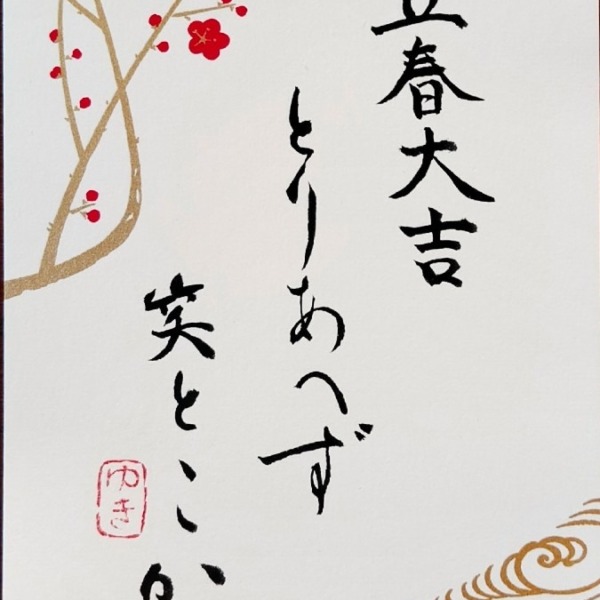 立春大吉
とりあへず
笑とこか
ゆき